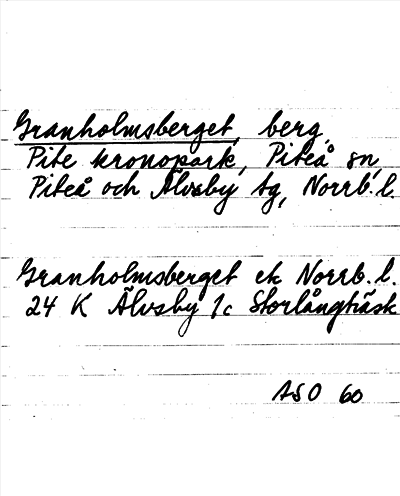 Granholmsberget, berg,
Pite kronopark, Piteå sn,
Piteå och Älvsby tg, Norrb. l.
Granholmsberget ek Norrb. l.
24 K Älvsby 1c Storlångträsk
ASO 60